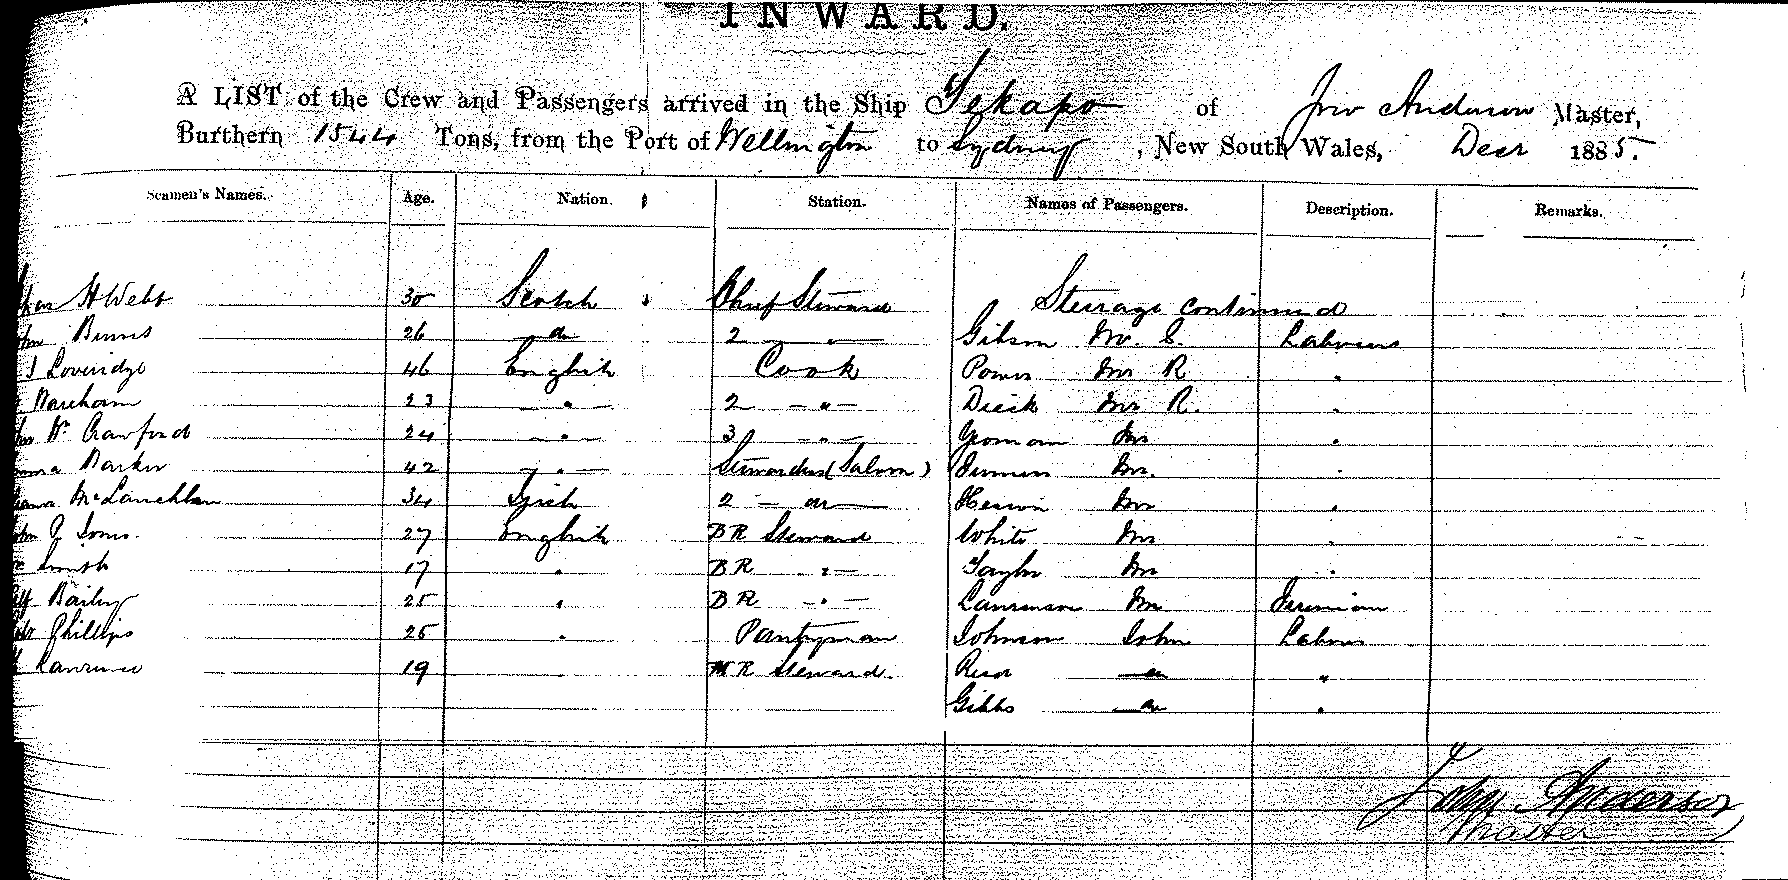 INWARD.
A LIST of the Crew and Passengers arrived in the Ship Tekapo of Jno Anderson Master,
Burthern 1544 Tons, from the Port of Wellington to Sydney, New South Wales, Decr 1885.
Seamen's Names. Age. Nation. Station. Names of Passengers. Description. Remarks.
Steerage continued
H Webb 30 Scotch Chief Steward
Burns 26 do 2 " Gibson Mr. S. Labourers
J Loveridge 46 English Cook Power Mr R "
Wareham 23 " 2 " Dick Mr R. "
Wm Crawford 24 " 3 " Yeoman Mr "
Barker 42 " Stewardess (Saloon) Mr. "
McLauchlan 34 Irish 2 do Mr "
27 English BR Steward White Mr "
Smith 17 " BR " Taylor Mr "
Bailey 25 " BR " Laurenson Mr
Phillips 25 " Pantryman Johnson John Labour
Lawrence 19 " MR Steward. do "
Gibbs do "
John Anderson
Master